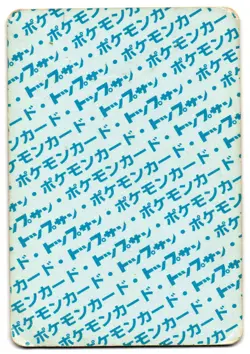 ポケモンカード・
トップサン・ポケモンカード・
ポケモンカード・トップサン・
トップサン・ポケモンカード・
ポケモンカード・トップサン・
トップサン・ポケモンカード・
ポケモンカード・トップサン・
トップサン・ポケモンカード・
ポケモンカード・トップサン・
トップサン・ポケモンカード・
ポケモンカード・トップサン・
トップサン・ポケモンカード
ポケモンカード